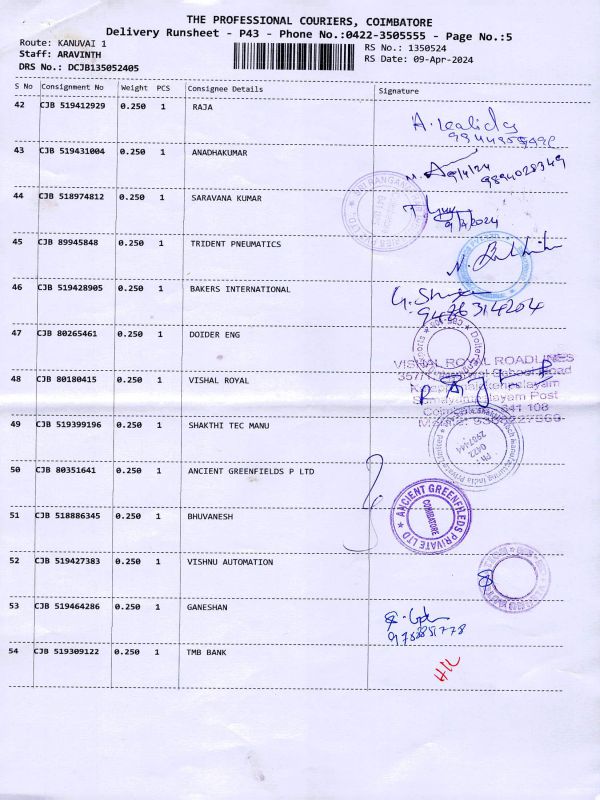 THE PROFESSIONAL COURIERS, COIMBATORE
Delivery Runsheet - P43 - Phone No.:0422-3505555 - Page No.:5
Route: KANUVAI 1
RS No.: 1350524
Staff: ARAVINTH
RS Date: 09-Apr-2024
DRS No.: DCJB135052405
S No Consignment No Weight PCS Consignee Details Signature
42 CJB 519412929 0.250 1 RAJA
43 CJB 519431004 0.250 1 ANADHAKUMAR
9/4/24
9894028349
44 CJB 518974812 0.250 1 SARAVANA KUMAR
9/4/2024
45 CJB 89945848 0.250 1 TRIDENT PNEUMATICS
46 CJB 519428905 0.250 1 BAKERS INTERNATIONAL
9486314204
47 CJB 80265461 0.250 1 DOIDER ENG
VISHAL ROYAL ROADLINES
48 CJB 80180415 0.250 1 VISHAL ROYAL
49 CJB 519399196 0.250 1 SHAKTHI TEC MANU
50 CJB 80351641 0.250 1 ANCIENT GREENFIELDS P LTD
ANCIENT GREENFIELDS PRIVATE LTD
COIMBATORE
51 CJB 518886345 0.250 1 BHUVANESH
52 CJB 519427383 0.250 1 VISHNU AUTOMATION
53 CJB 519464286 0.250 1 GANESHAN
54 CJB 519309122 0.250 1 TMB BANK